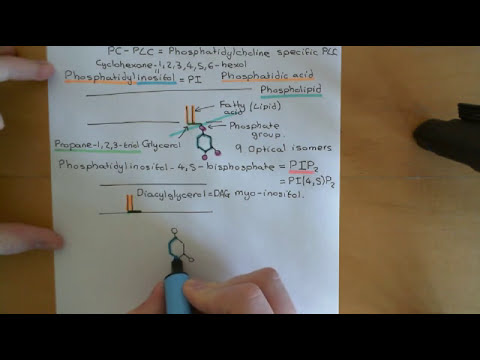 PC-PLC = Phosphatidylcholine specific PLC
Cyclohexane-1,2,3,4,5,6-hexol
Phosphatidylinositol = PI Phosphatidic acid
Phospholipid
Fatty acid (Lipid)
Phosphate group.
Propane-1,2,3-triol Glycerol
9 Optical isomers
Phosphatidylinositol-4,5-bisphosphate = PIP2
= PI(4,5)P2
Diacylglycerol=DAG myo-inositol.